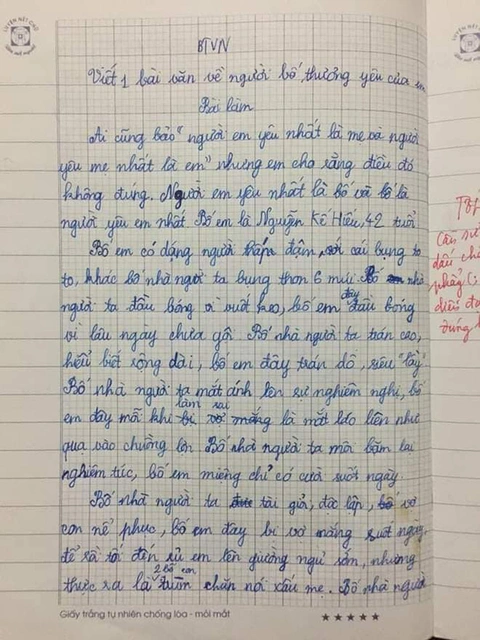 BTVN
Viết 1 bài văn về người bố thương yêu của em
Bài làm
Ai cũng bảo "người em yêu nhất là mẹ và người
yêu mẹ nhất là em" nhưng em cho rằng điều đó
không đúng. Người em yêu nhất là bố và bố là
người yêu em nhất. Bố em là Nguyễn Kế Hiếu, 42 tuổi
Bố em có dáng người thấp đậm, với cái bụng to
to, khác bố nhà người ta bụng thon 6 múi. Bố nhà
người ta đầu bóng vì vuốt keo, bố em đây đầu bóng
vì lâu ngày chưa gội. Bố nhà người ta trán cao,
hiểu biết rộng dài, bố em đây trán dô, siêu "lầy"
Bố nhà người ta mắt ánh lên sự nghiêm nghị, bố
em đây mỗi khi làm sai là mắt láo liên như
quạ vào chuồng lợn. Bố nhà người ta môi bặm lại
nghiêm túc, bố em miệng chỉ có cười suốt ngày
Bố nhà người ta tài giỏi, độc lập, vợ
con nể phục, bố em đây bị vợ mắng suốt ngày,
để rồi tối đến rủ em lên giường ngủ sớm, nhưng
thực ra là 2 bố con trùm chăn nói xấu mẹ. Bố nhà người
Giấy trắng tự nhiên chống lóa - mỏi mắt
LUYỆN NÉT CHỮ
Cần sử
dấu